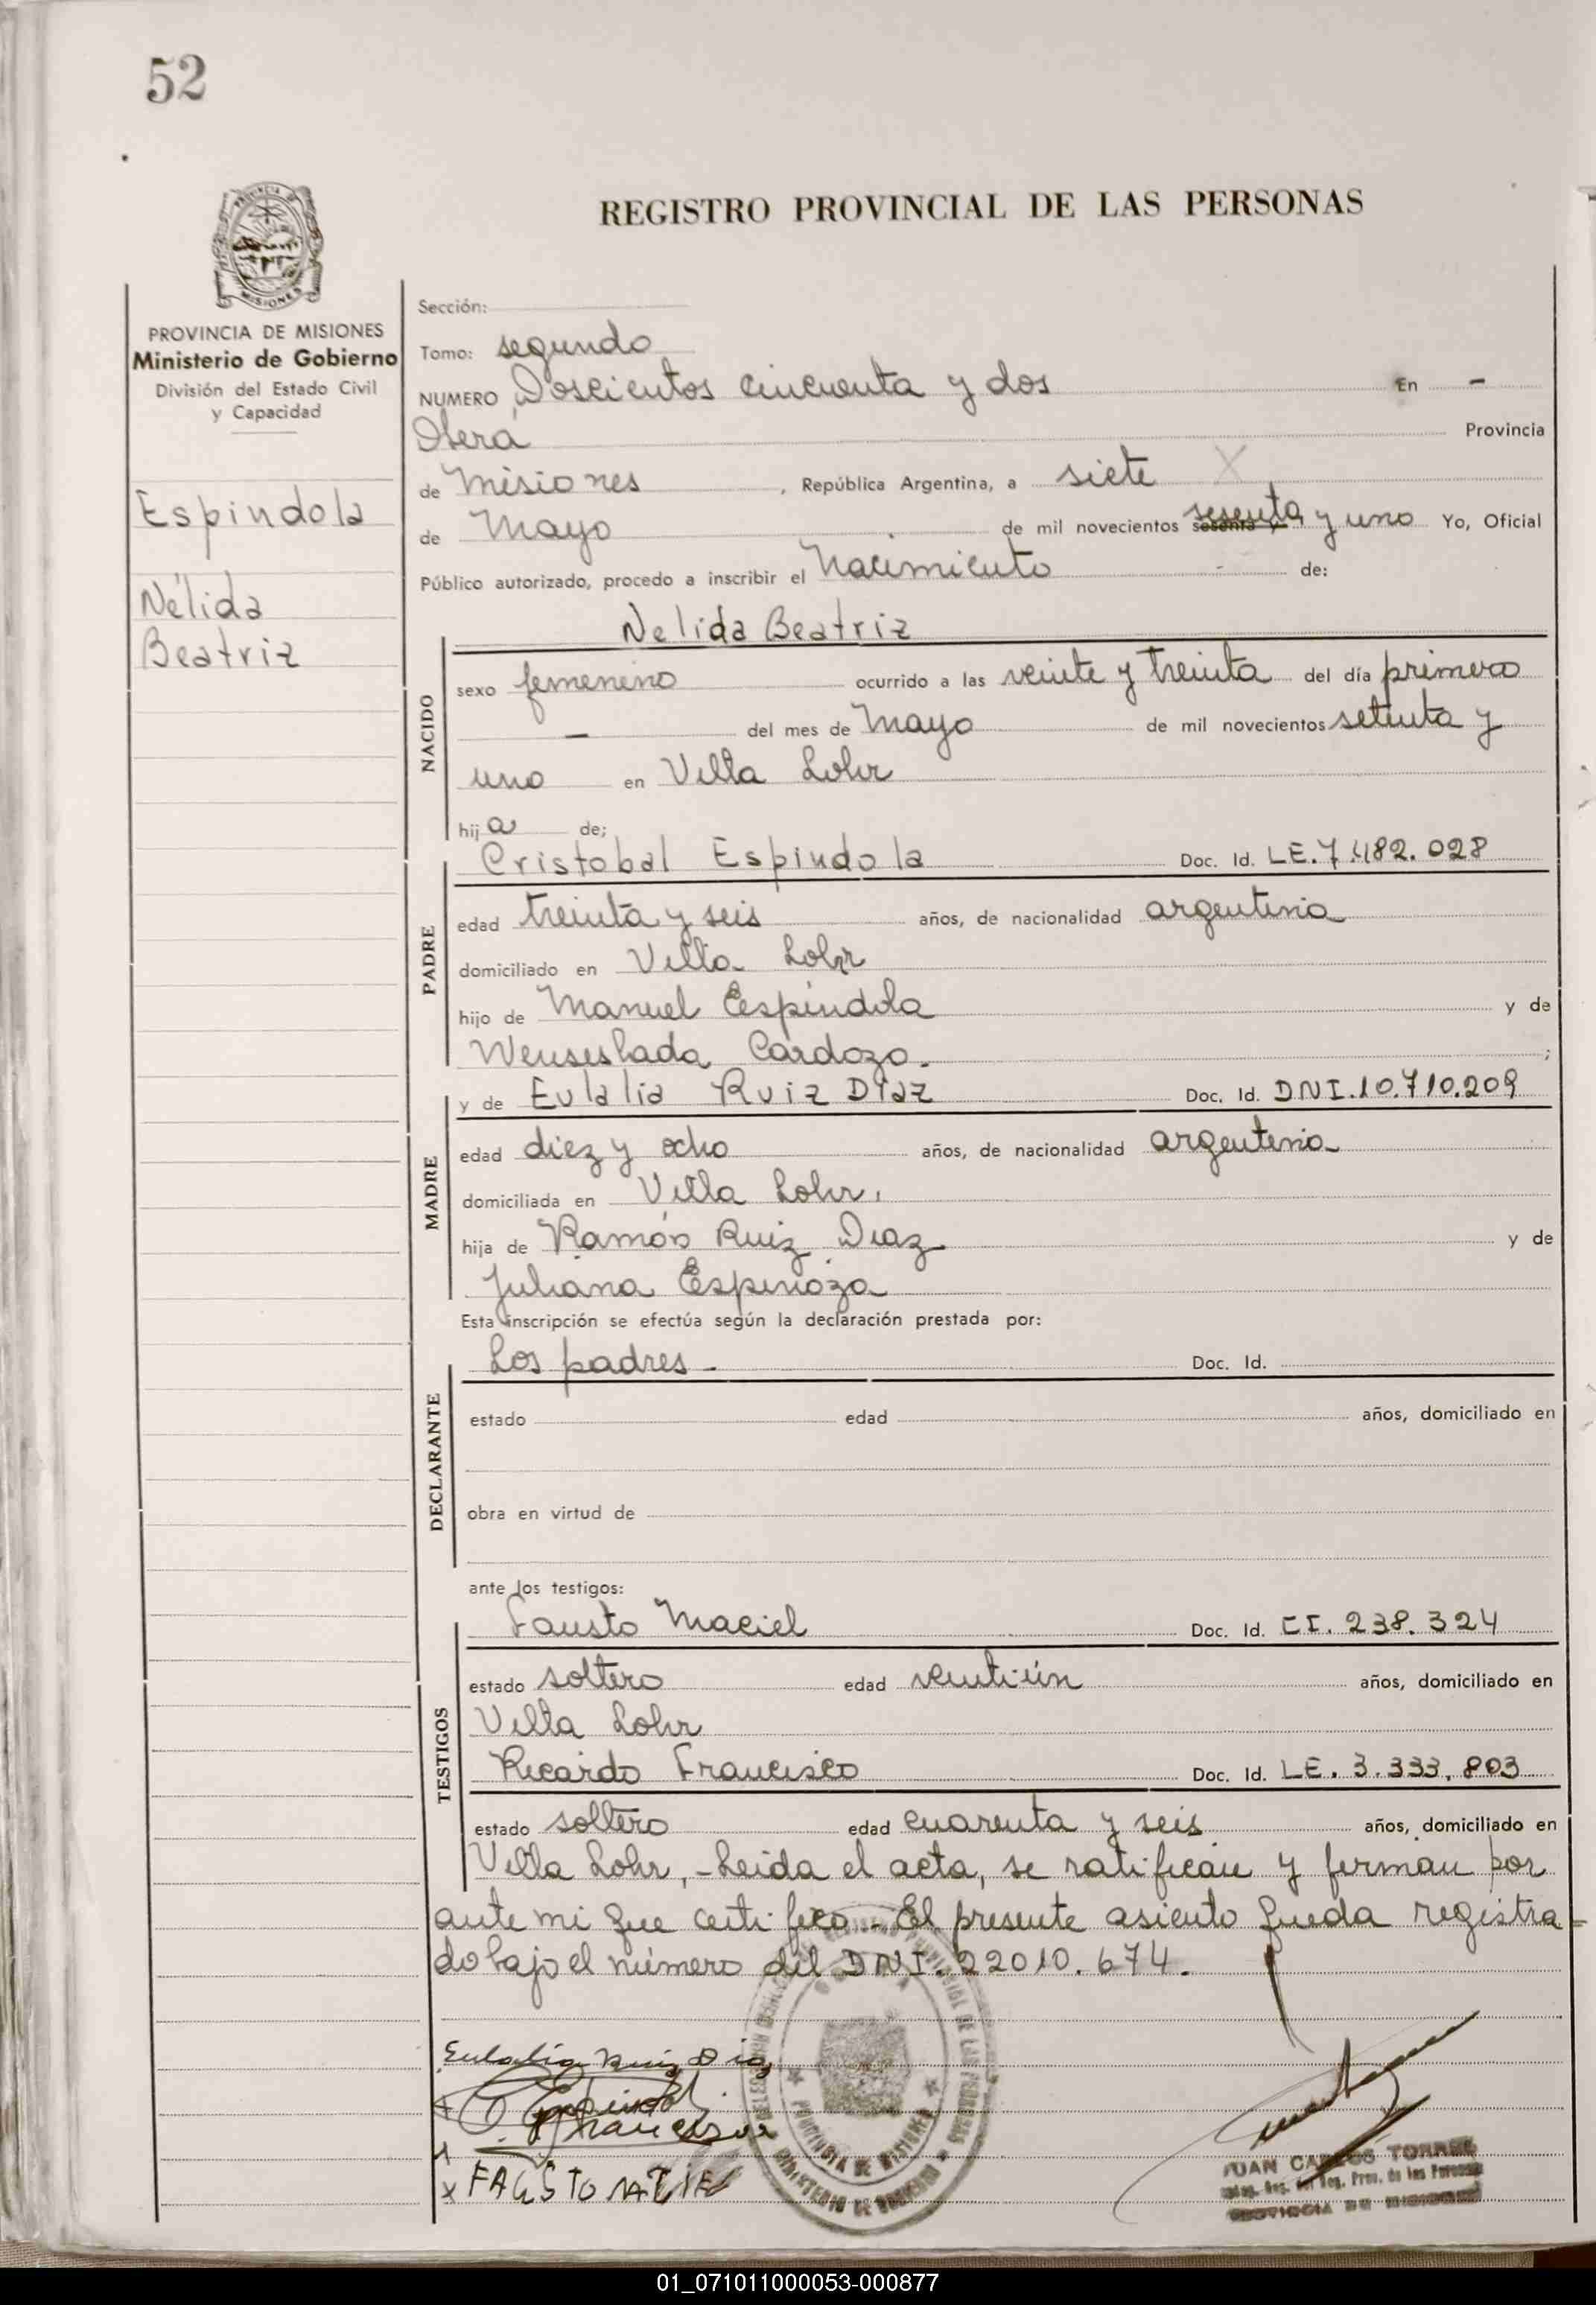 52
REGISTRO PROVINCIAL DE LAS PERSONAS
PROVINCIA DE MISIONES
Ministerio de Gobierno
División del Estado Civil
y Capacidad
Espindola
Nélida
Beatriz
Sección:
Tomo: segundo
NUMERO Doscientos cincuenta y dos En -
Oberá Provincia
de Misiones, República Argentina, a siete X
de Mayo de mil novecientos sesenta sesenta y uno Yo, Oficial
Público autorizado, procedo a inscribir el Nacimiento de:
NACIDO
Nelida Beatriz
sexo femenino ocurrido a las veinte y treinta del día primero
- del mes de Mayo de mil novecientos setenta y
uno en Villa Lohr
hija de;
PADRE
Cristobal Espindola Doc. Id. LE. 7.482.028
edad treinta y seis años, de nacionalidad argentina
domiciliado en Villa Lohr
hijo de Manuel Espíndola y de
Wenseslada Cardozo. ;
MADRE
y de Eulalia Ruiz Díaz Doc. Id. DNI. 10.710.209
edad diez y ocho años, de nacionalidad argentina
domiciliada en Villa Lohr.
hija de Ramón Ruiz Diaz y de
Juliana Espinoza
Esta inscripción se efectúa según la declaración prestada por:
DECLARANTE
Los padres - Doc. Id.
estado edad años, domiciliado en
obra en virtud de
ante los testigos:
TESTIGOS
Fausto Maciel Doc. Id. CI. 238.324
estado soltero edad veintiún años, domiciliado en
Villa Lohr
Ricardo Francisco Doc. Id. LE. 3.333.803
estado soltero edad cuarenta y seis años, domiciliado en
Villa Lohr, - Leida el acta, se ratifican y firman por
ante mi que certifico - El presente asiento queda registra-
do bajo el número del DNI. 22010.674.
Eulalia Ruiz Diaz
C. Espindola
Francisco
x FAUSTO
PROVINCIA DE MISIONES
MINISTERIO DE GOBIERNO
JUAN CARLOS TORRES
Reg. Prov. de las Personas
PROVINCIA DE MISIONES
01_071011000053-000877